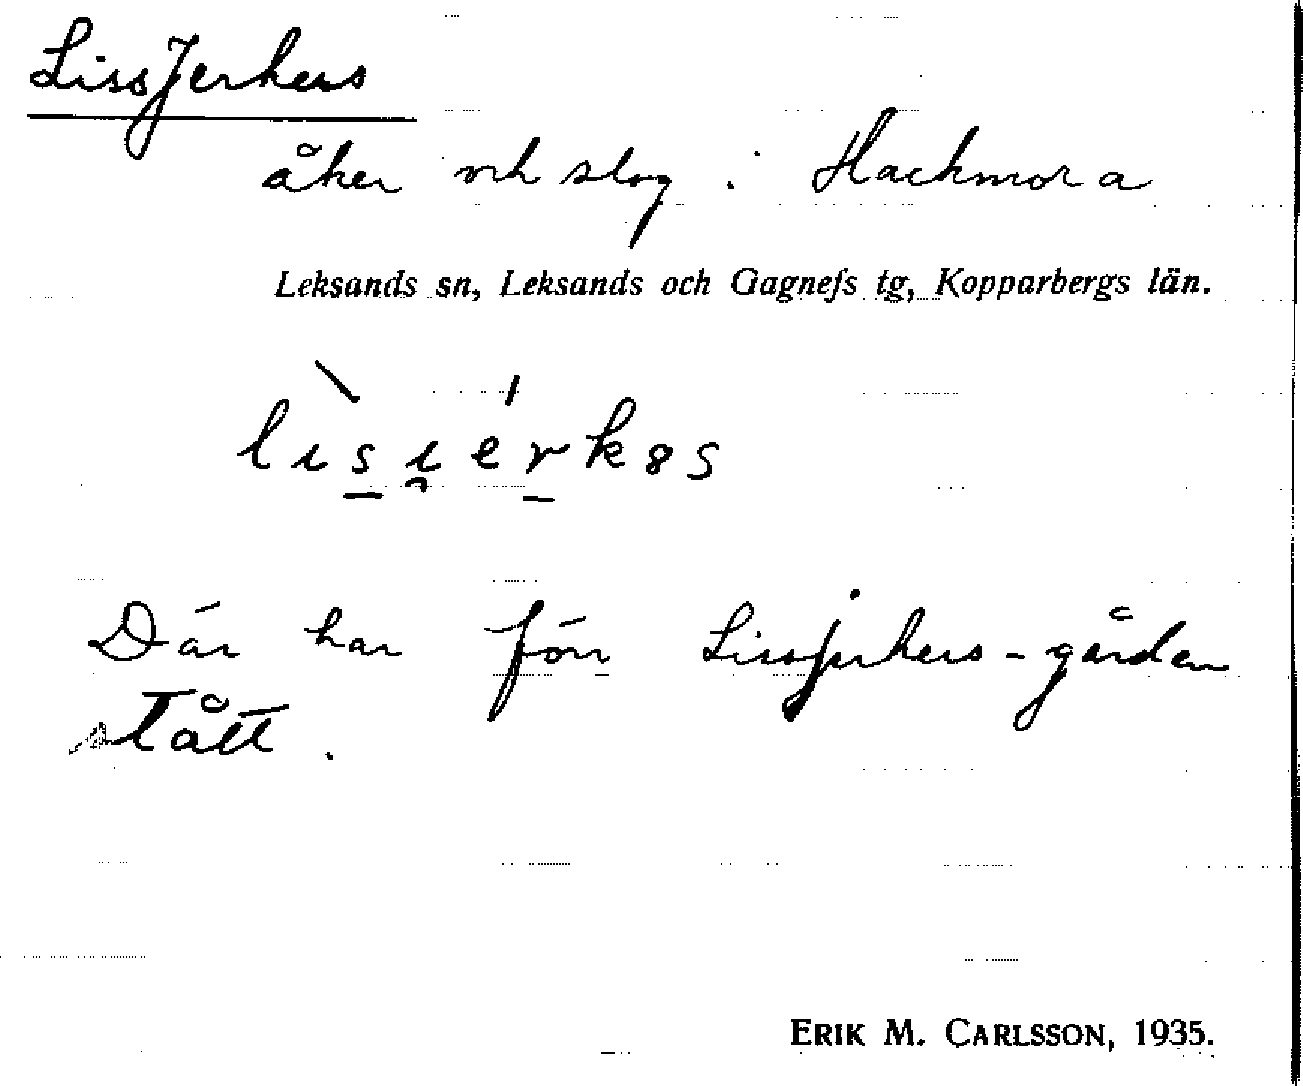 LissJerkers
åker och slog i Hackmora
Leksands sn, Leksands och Gagnefs tg, Kopparbergs län.
lìsi̯érkəs
Där har förr Lissjerkers-gården
stått.
ERIK M. CARLSSON, 1935.